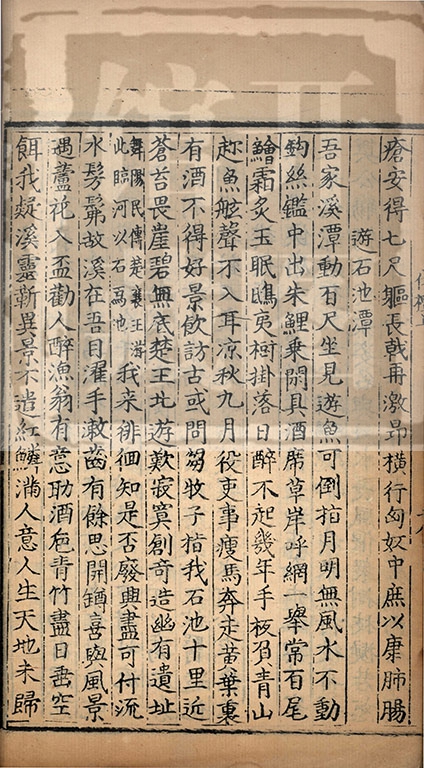 瘡安得七尺軀長戟再激昂橫行匈奴中庶以康肺腸
遊石池潭
吾家溪潭動百尺坐見遊魚可倒拍月明無風水不動
鈎絲鑑中出朱鯉乗閑具酒席草岸呼網一舉常百尾
鱠霜炙玉眠鴟夷樹掛落日醉不起幾年手板負青山
魚舩聲不入耳凉秋九月役吏事瘦馬奔走黃葉裏
有酒不得好景飲訪古或問芻牧子指我石池十里近
蒼苔畏崖碧無底楚王北遊歎寂寞創奇造幽有遺址
舞陽民傳楚襄王游
此臨河以石爲池
我来徘徊知是否廢興盡可付流
水髣髴故溪在吾目濯手漱齒有餘思開罇喜與風景
遇蘆花入盃勸人醉漁翁有意助酒巵青竹盡日垂空
餌我疑溪靈靳異景不遣紅鱗滿人意人生天地未歸